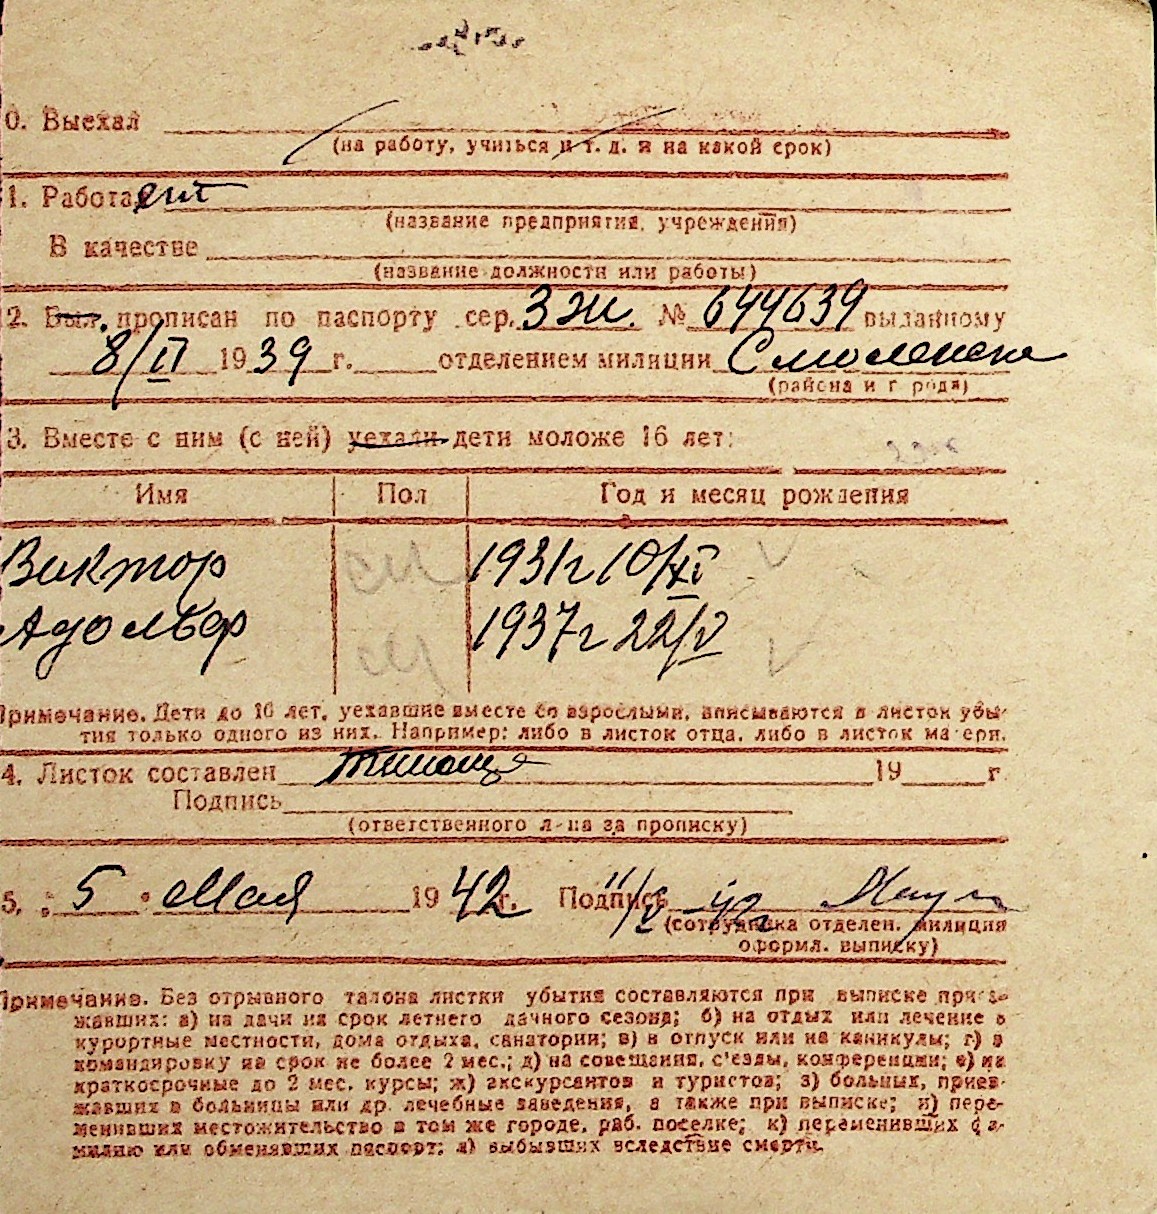 0. Выехал
(на работу, учиться и т. д. и на какой срок)
1. Работает
(название предприятия, учреждения)
В качестве
(название должности или работы)
2. Был. прописан по паспорту сер. ЗЖ. № 644639 выданному
8/II 1939 г. отделением милиции Смоленска
(района и города)
3. Вместе с ним (с ней) уехали дети моложе 16 лет:
Имя Пол Год и месяц рождения
Виктор м 1931г 10/XI
Адольф м 1937г 22/V
Примечание. Дети до 16 лет, уехавшие вместе со взрослыми, вписываются в листок убы-
тия только одного из них. Например: либо в листок отца, либо в листок матери.
4. Листок составлен 19 г.
Подпись
(ответственного л-ца за прописку)
5. 5 Мая 1942 г. Подпись 11/V 42г
(сотрудника отделен. милиция
оформл. выписку)
Примечание. Без отрывного талона листки убытия составляются при выписке приез-
жавших: а) на дачи на срок летнего дачного сезона; б) на отдых или лечение в
курортные местности, дома отдыха, санатории; в) в отпуск или на каникулы; г) в
командировку на срок не более 2 мес.; д) на совещания, с'езды, конференции; е) на
краткосрочные до 2 мес. курсы; ж) экскурсантов и туристов; з) больных, приез-
жавших в больницы или др. лечебные заведения, а также при выписке; и) пере-
менивших местожительство в том же городе, раб. поселке; к) переменивших фа-
милию или обменявших паспорт; л) выбывших вследствие смерти.